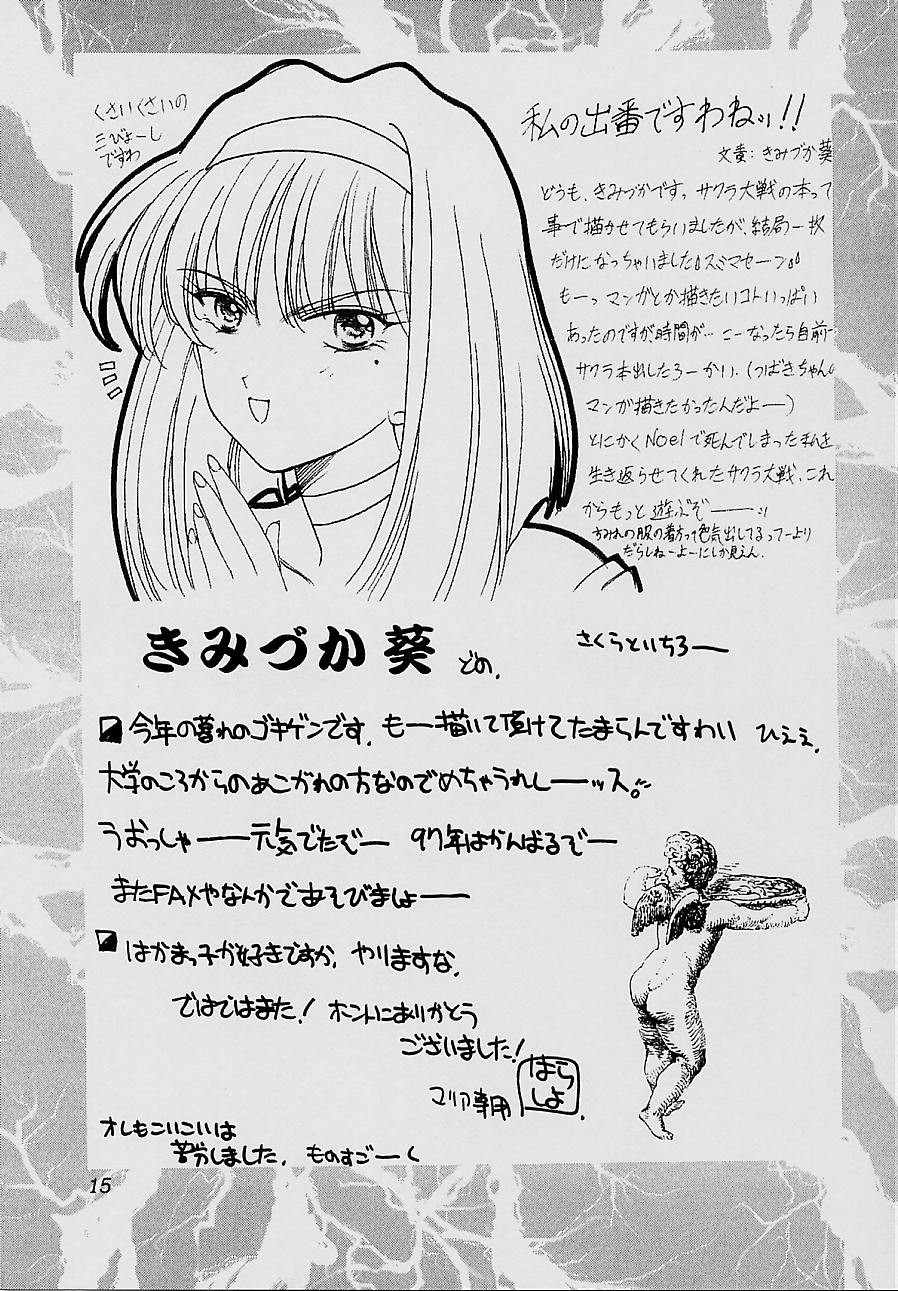 くさいくさいの
三びょーし
ですわ
私の出番ですわねッ!!
文責:きみづか葵
どうも、きみづかですっ サクラ大戦の本って
事で描かせてもらいましたが、結局一枚
だけになっちゃいました スミマセーン。
もーっ マンガとか描きたいコトいっぱい
あったのですが、時間が… こーなったら自前で
サクラ本出したろーかい、(つばきちゃんの
マンガ描きたかったんだよー)
とにかくNoelで死んでしまった私を
生き返らせてくれたサクラ大戦、これ
からもっと遊ぶぞーーッ
すみれの服の着方って色気出してるってーより
だらしねーよーにしか見えん.
きみづか 葵 どの.
さくらといちろー
今年の暮れのゴキゲンです. もー描いて頂けてたまらんですわい ひええ.
大学のころからのあこがれの方なのでめちゃうれしーーッス。
うおっしゃーー元気でたぞー 97年はがんばるぞー
またFAXやなんかであそびましょーー
はかまっ子が好きですか. やりますな.
ではではまた! ホントにありがとう
ございました!
マリア専用
はらしよ.
オレもこいこいは
苦労しました. ものすごーく
15